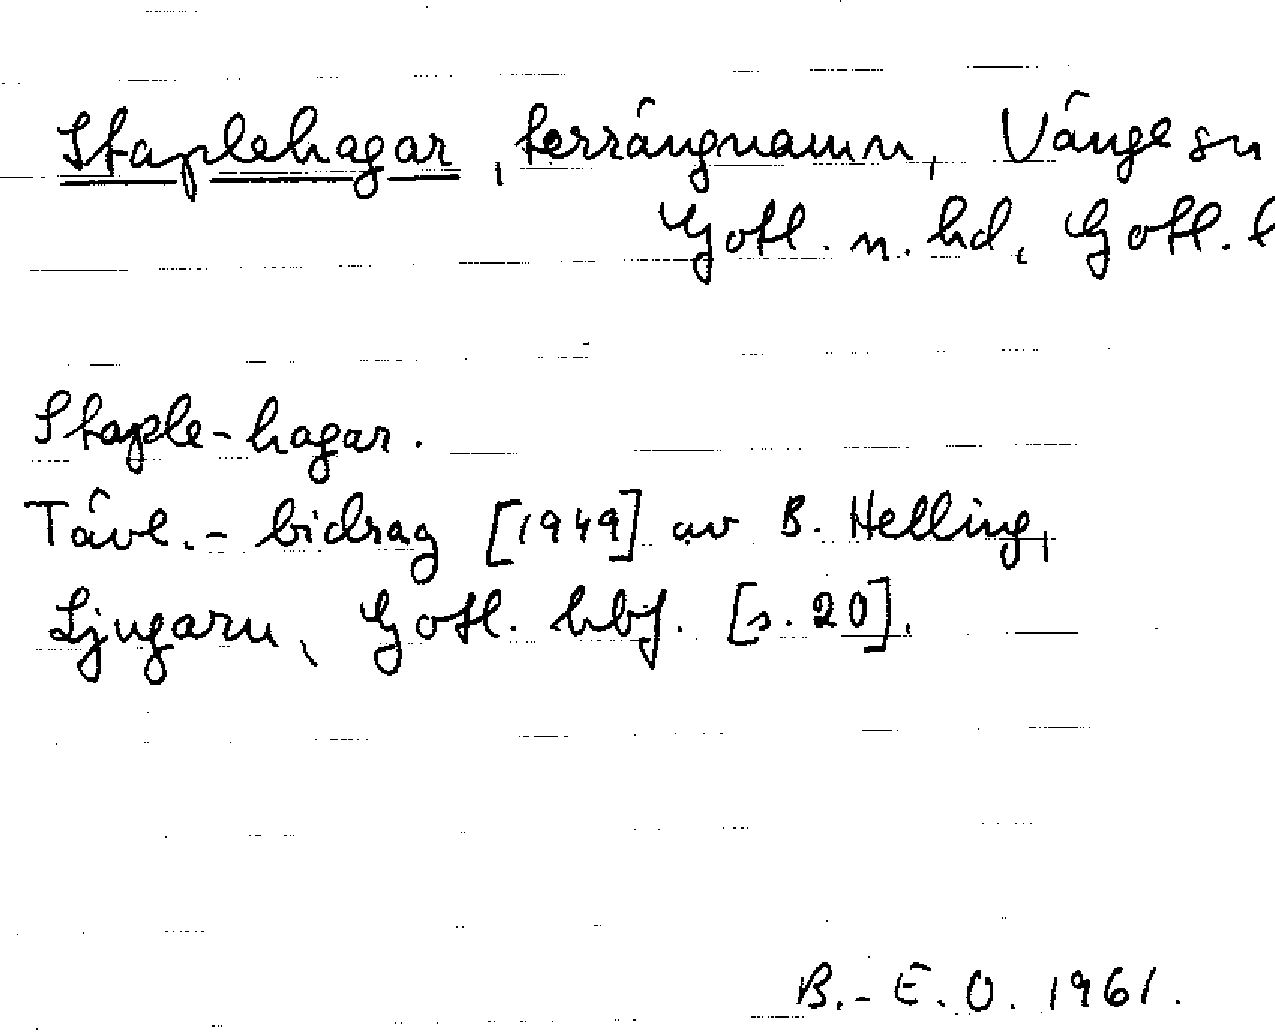 Staplehagar, terrängnamn, Vänge sn
Gotl. n. hd, Gotl. l
Staple-hagar.
Tävl.-bidrag [1949] av B. Helling,
Ljugarn, Gotl. hbf. [s. 20].
B.-E.O. 1961.